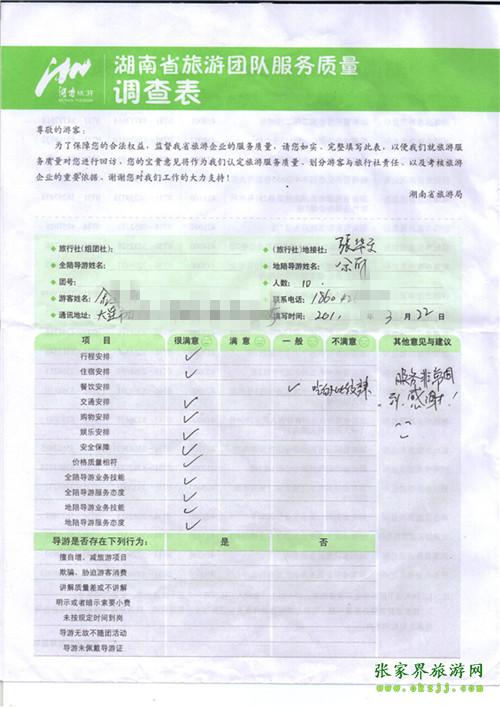 湖南省旅游团队服务质量
调查表
湖南旅游
尊敬的游客:
为了保障您的合法权益,监督我省旅游企业的服务质量,请您如实、完整填写此表,以便我们就旅游服
务质量对您进行回访、您的宝贵意见将作为我们认定旅游服务质量、划分游客与旅行社责任、以及考核旅游
企业的重要依据。谢谢您对我们工作的大力支持!
湖南省旅游局
旅行社(组团社): (旅行社)地接社: 张华文
全陪导游姓名: 地陪导游姓名:
团号: 人数: 10.
游客姓名: 联系电话: 1860
通讯地址: 大连 填写时间: 201 年 3 月 22 日
项 目 很满意 满 意 一 般 不满意 其他意见与建议
行程安排 ✓
住宿安排 ✓
餐饮安排 ✓ 服务非常周
交通安排 ✓ 到,感谢!
购物安排 ✓
娱乐安排 ✓
安全保障 ✓
价格质量相符 ✓
全陪导游业务技能 ✓
全陪导游服务态度 ✓
地陪导游业务技能 ✓
地陪导游服务态度 ✓
导游是否存在下列行为: 是 否
擅自增、减旅游项目
欺骗、胁迫游客消费
讲解质量差或不讲解
明示或者暗示索要小费
未按规定时间到岗
导游无故不随团活动
导游未佩戴导游证
张家界旅游网
www.okzjj.com